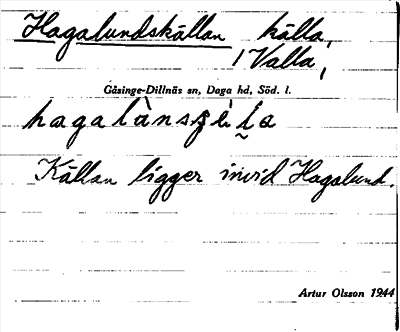 Hagalundskällan källa,
/ Valla,
Gåsinge-Dillnäs sn, Daga hd, Söd. l.
Källan ligger invid Hagalund.
Artur Olsson 1944